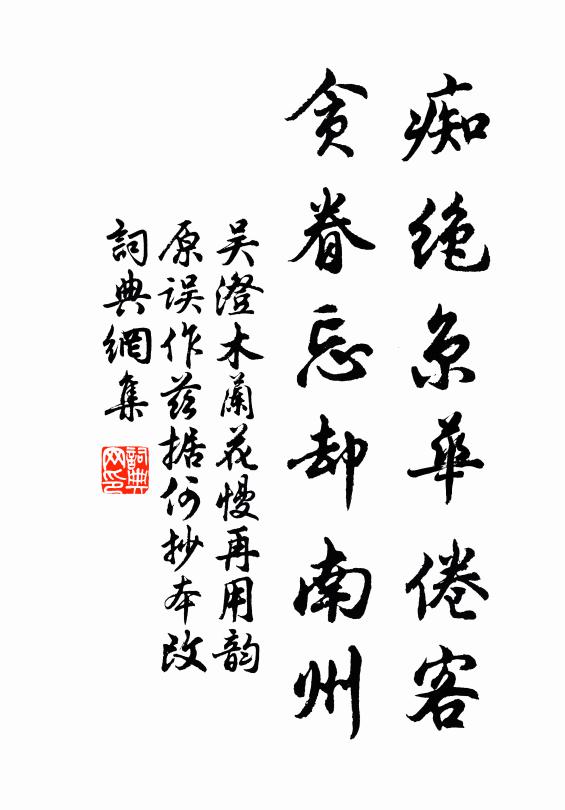 痴绝京华倦客
贪眷忘却南州
吴澄木蘭花慢再用韵
原误作兹据何抄本改
詞典網集
詞典网印